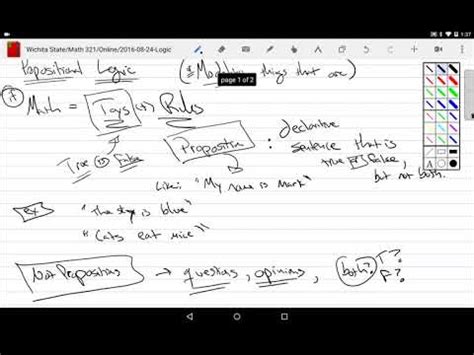 1:37
Wichita State/Math 321/Online/2016-08-24-Logic
Propositional Logic (*Modeling things that are)
page 1 of 2
Math = Toys (+) Rules
True False
Proposition : declarative
sentence that is
true False,
but not both.
Like: "My name is Mark"
Ex "The sky is blue"
"Cats eat mice"
Not Propositions → questions, opinions, both? T?
F?